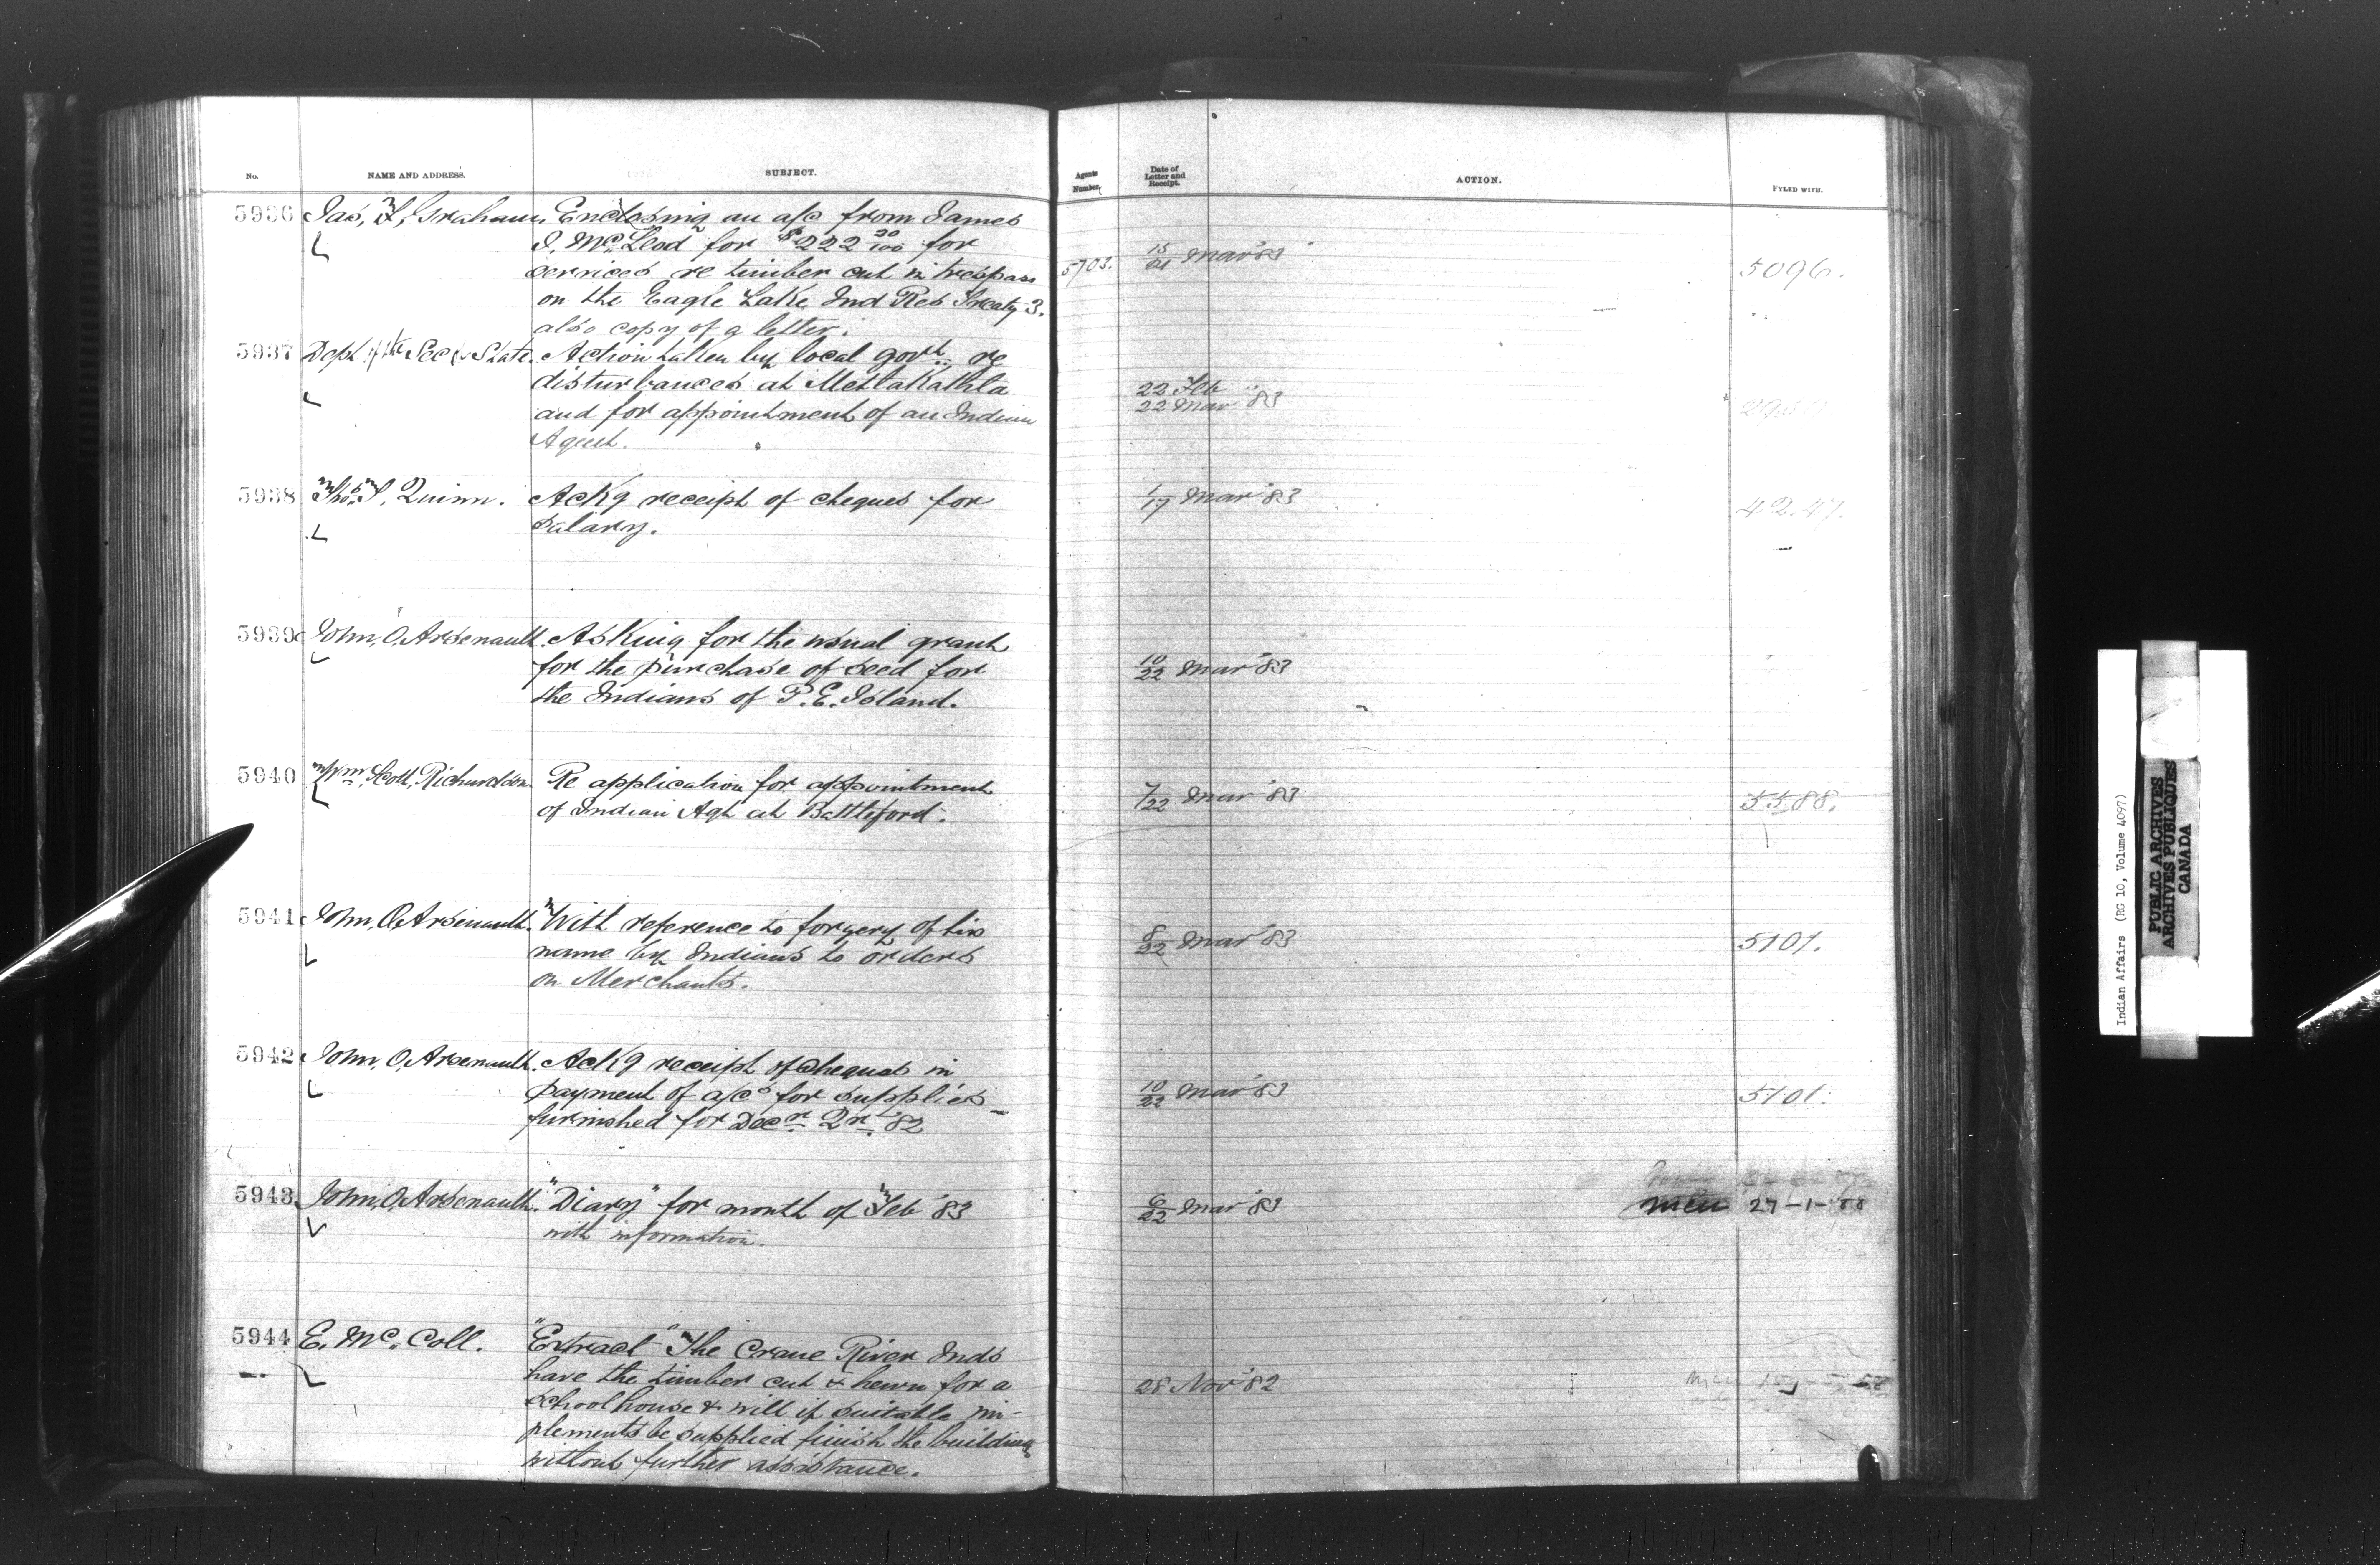 No. NAME AND ADDRESS. SUBJECT. Agents Number. Date of Letter and Receipt. ACTION. FYLED WITH.
5936 Jas, F, Graham, Enclosing an a/c from James
J. McLeod for $222 20/100 for
services re timber cut in trespass 5703. 15/21 Mar '83 5096.
on the Eagle Lake Ind Res Treaty 3.
also copy of a letter.
5937 Dept of the Sec of State. Action taken by local govt re
disturbances at Metlakathla 22 Feb
and for appointment of an Indian 22 Mar '83
Agent.
5938 Thos. P, Quinn. Ackg receipt of cheques for 1/17 Mar '83 42.47.
salary.
5939 John, O, Arsenault. Asking for the usual grant
for the purchase of seed for 10/22 Mar '83
the Indians of P.E. Island.
5940 Wm. Scott, Richardson Re application for appointment 7/22 Mar '83 5588.
of Indian Agt at Battleford.
5941 John, O, Arsenault. With reference to forgery of his 8/22 Mar '83 5101.
name by Indians to orders
on Merchants.
5942 John, O, Arsenault. Ackg receipt of cheques in
payment of a/cs for supplies 10/22 Mar '83 5101.
furnished for Decr Qr. '82
5943 John, O, Arsenault. "Diary" for month of Feb '83 6/22 Mar '83 27-1-88
with information.
5944 E. McColl. "Extract" The Crane River Inds
have the timber cut & hewn for a 28 Nov '82
schoolhouse & will if suitable im-
plements be supplied finish the building
without further assistance.
Indian Affairs (RG 10, Volume 4097)
PUBLIC ARCHIVES
ARCHIVES PUBLIQUES
CANADA